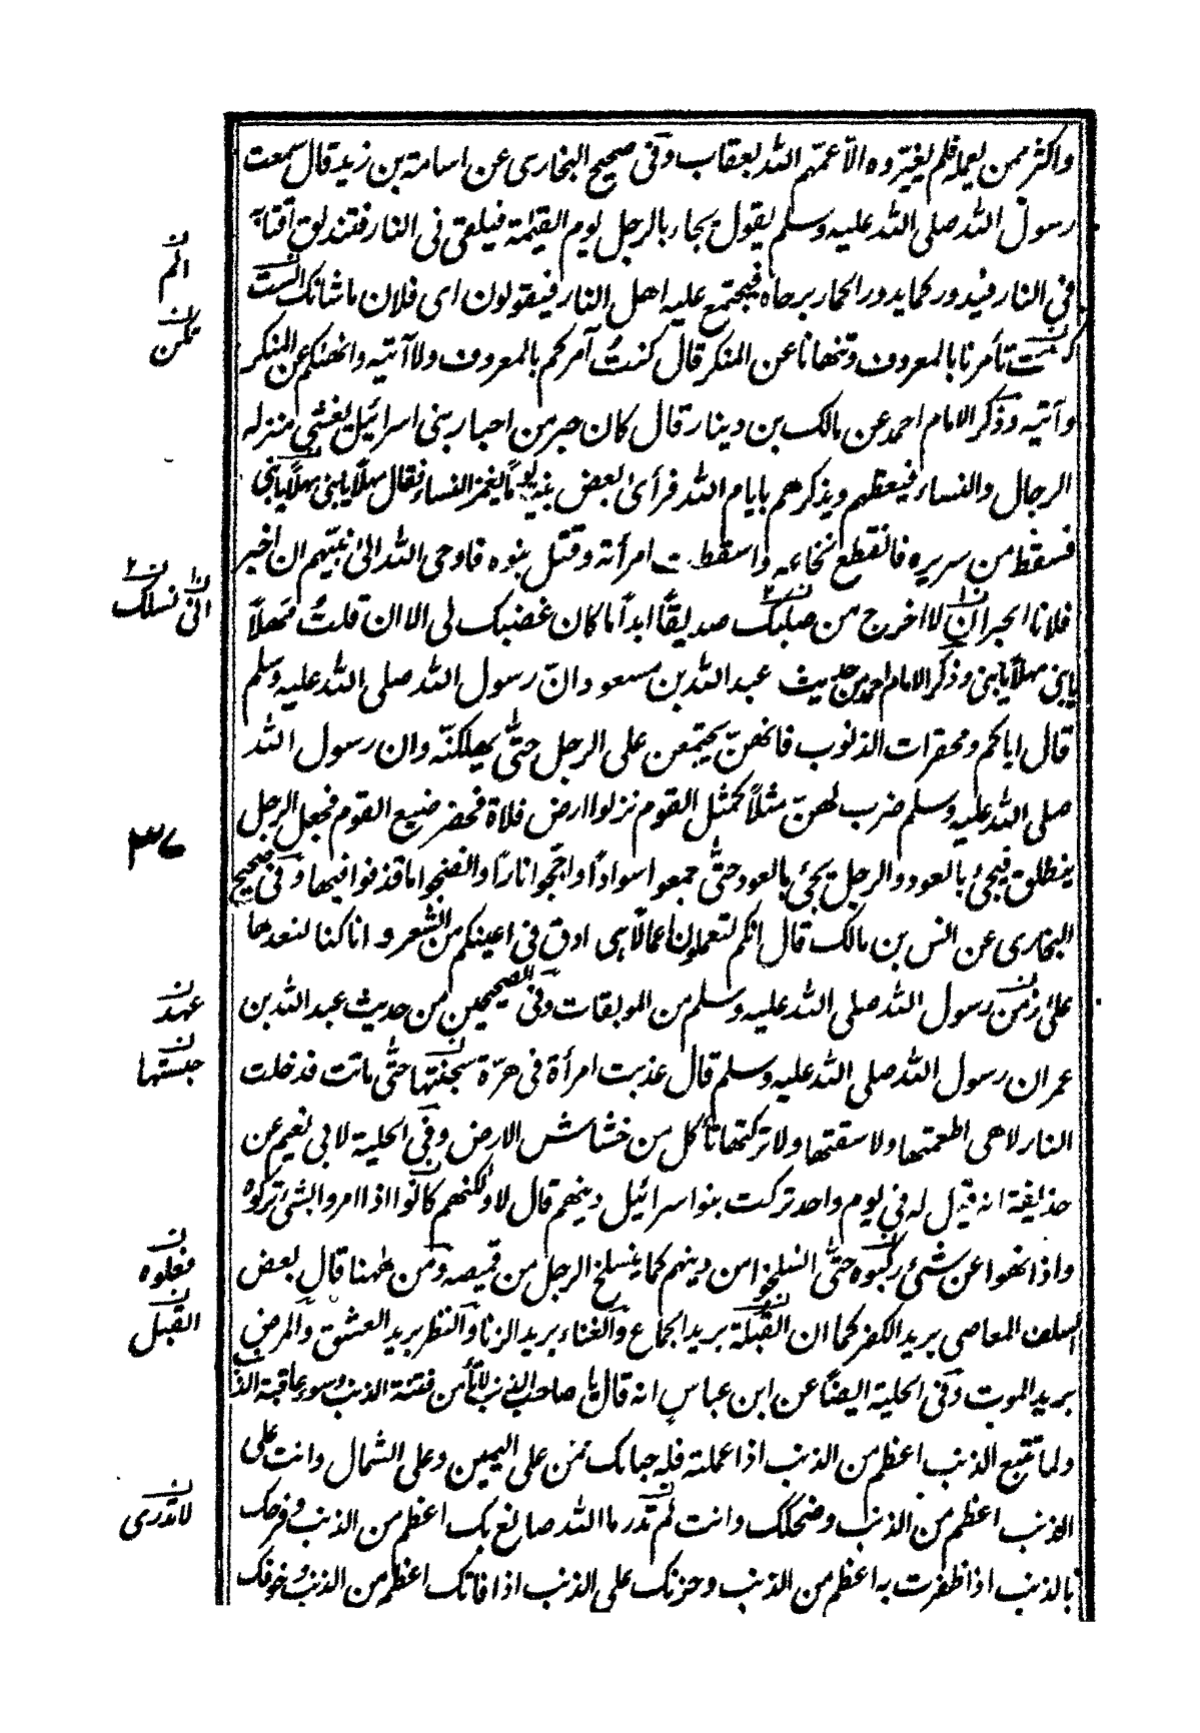 واكثر ممن يعمله فلم يغيّروه الا عمّهم الله بعقاب وفى صحيح البخارى عن اسامة بن زيد قال سمعت
رسول الله صلى الله عليه وسلم يقول يجاء بالرجل يوم القيٰمة فيلقى فى النار فتندلق اقتابه
فى النار فيدور كما يدور الحمار برحاه فيجتمع عليه اهل النار فيقولون اى فلان ما شانك الست
كنت تأمرنا بالمعروف وتنهانا عن المنكر قال كنتُ آمركم بالمعروف ولا آتيه وانهٰكم عن المنكر
وآتيه وذكر الامام احمد عن مالك بن دينار قال كان حبر من احبار بنى اسرائيل يغشى منزله
الرجال والنساء فيعظهم ويذكرهم بايام الله فرأى بعض بنيه يوماً يغمز النساء فقال مهلاً يابنى مهلاً يابنى
فسقط من سريره فانقطع نخاعه واسقطت امرأته وقتل بنوه فاوحى الله الىٰ نبيّهم ان اخبر
فلانا الحبر ان لا اخرج من صلبك صديقاً ابداً ما كان غضبك لى الا ان قلتُ مَهلاً
يابنى مهلاً يابنى وذكر الامام احمد من حديث عبد الله بن مسعود انّ رسول الله صلى الله عليه وسلم
قال اياكم ومحقرات الذنوب فانهنّ يجتمعن على الرجل حتّٰى يهلكنّه وان رسول الله
صلى الله عليه وسلم ضرب لهنّ مثلاً كمثل القوم نزلوا ارض فلاة فحضر ضيع القوم فجعل الرجل
ينطلق فيجئ بالعود والرجل يجئ بالعود حتّٰى جمعوا سواداً واجّجوا ناراً وانضجوا ما قذفوا فيها وفى صحيح
البخارى عن انس بن مالك قال انكم لتعملون اعمالاً هى ادق فى اعينكم من الشعر و انا كنا لنعدها
علىٰ زمن رسول الله صلى الله عليه وسلم من الموبقات وفى الصحيحين من حديث عبد الله بن
عمر ان رسول الله صلى الله عليه وسلم قال عذبت امرأة فى هرّة سجنتها حتّٰى ماتت فدخلت
النار لا هى اطعمتها ولا سقتها ولا تركتها تأكل من خشاش الارض وفى الحلية لابى نعيم عن
حذيفة انه قيل له فى يوم واحد تركت بنو اسرائيل دينهم قال لا ولٰكنهم كانوا اذا امروا بشئ تركوه
واذا نهوا عن شئ ركبوه حتّٰى انسلخوا من دينهم كما ينسلخ الرجل من قميصه ومن هٰهنا قال بعض
السلف المعاصى بريد الكفر كما ان القبلة بريد الجماع والغناء بريد الزنا والنظر بريد العشق والمرض
بريد الموت وفى الحلية ايضاً عن ابن عباس انه قال يا صاحب الذنب لا تأمن فتنة الذنب وسوء عاقبة الذنب
ولما تتبع الذنب اعظم من الذنب اذا عملته قلة حيائك ممن على اليمين وعلى الشمال وانت على
الذنب اعظم من الذنب وضحكك وانت لم تدر ما الله صانع بك اعظم من الذنب وفرحك
بالذنب اذا ظفرت به اعظم من الذنب وحزنك على الذنب اذا فاتك اعظم من الذنب وخوفك
ن
الم
ن
تكن
ن١
انى
ن٢
نسلك
٣٧
ن
عهد
ن
حبستها
ن
فعلوه
ن
القبل
ن
لا تدرى